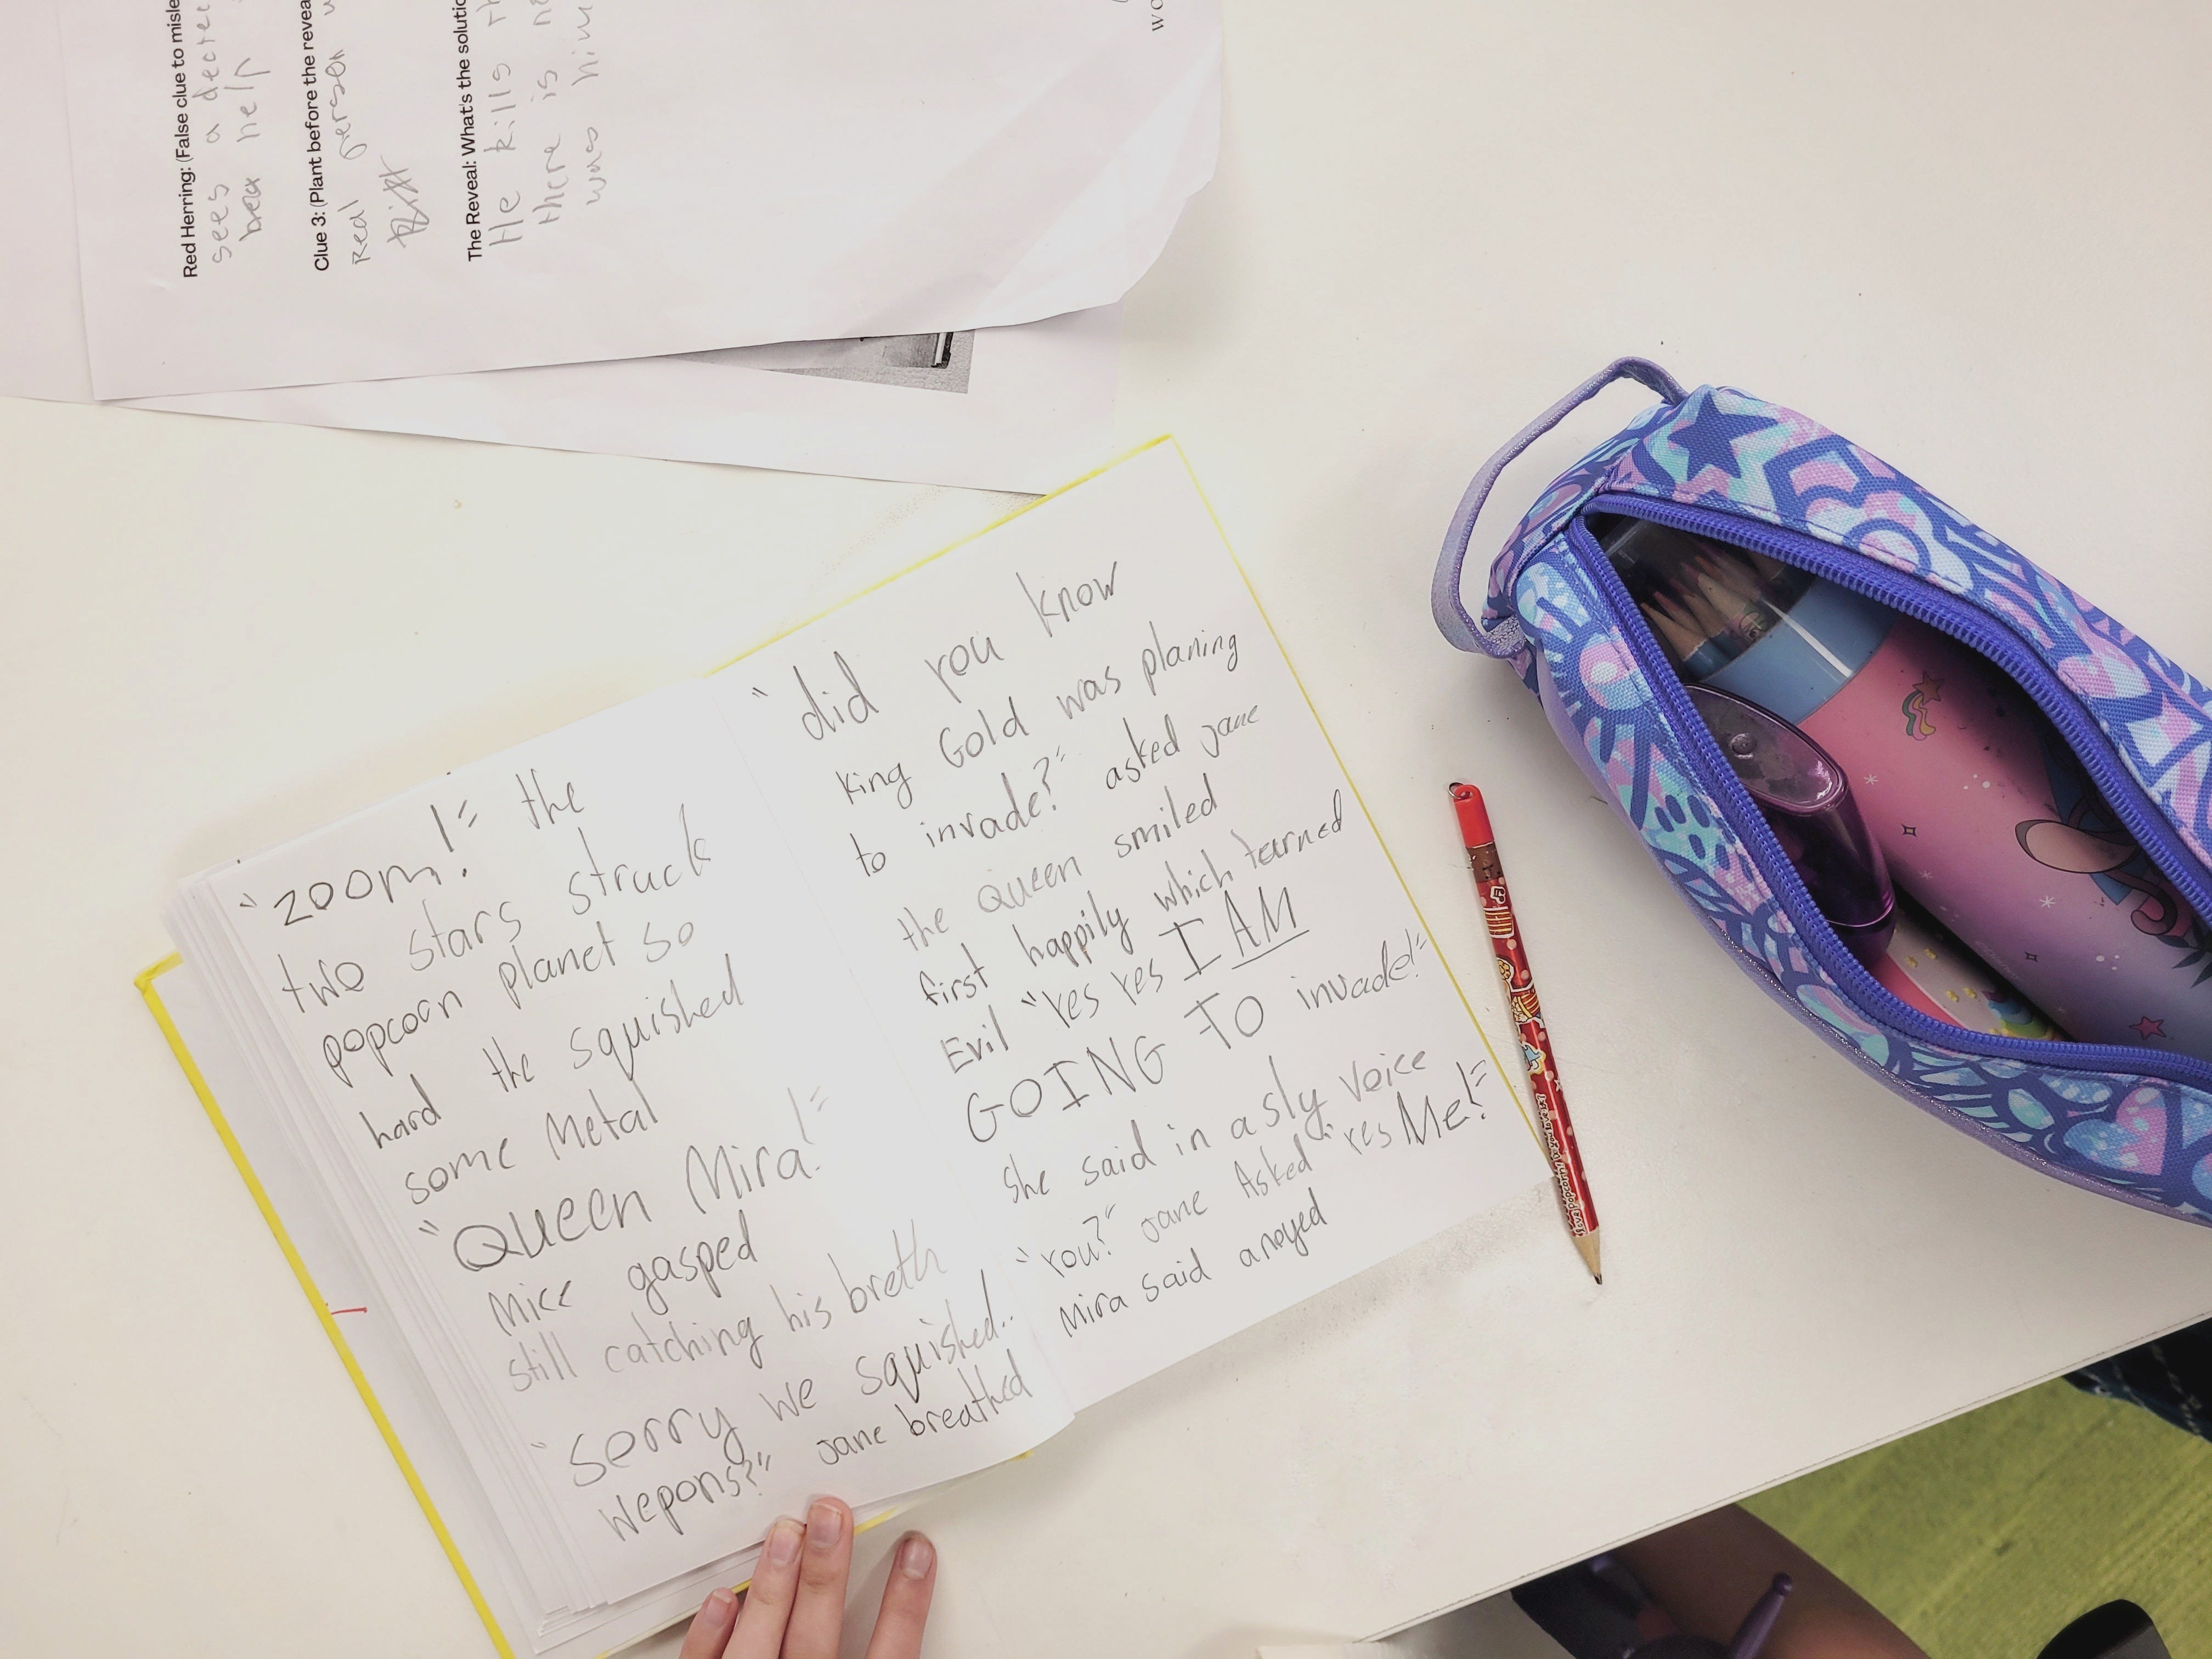 Red Herring: (False clue to misle
sees a
brea help
Clue 3: (Plant before the revea
real person
The Reveal: What's the soluti
He kills
there is
was him
"zoom!" the
two stars struck
popcoan planet so
hard the squished
some Metal
"Queen Mira!"
Mice gasped
still catching his breth
"Sorry we squished..
wepons?" Jane breathed
"did you know
king Gold was planing
to invade?" asked Jane
the Queen smiled
first happily which turned
Evil "Yes Yes I AM
GOING TO invade!"
She said in a sly voice
"You?" Jane Asked "Yes Me!"
Mira said anoyed